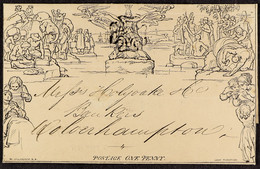 Messrs Holyoake & Co
Bankers
Wolverhampton
POSTAGE ONE PENNY.